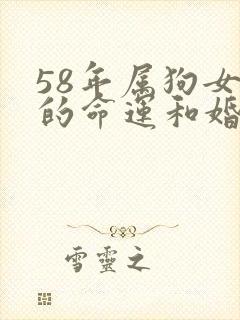 58年属狗女
的命运和婚
雪靈之